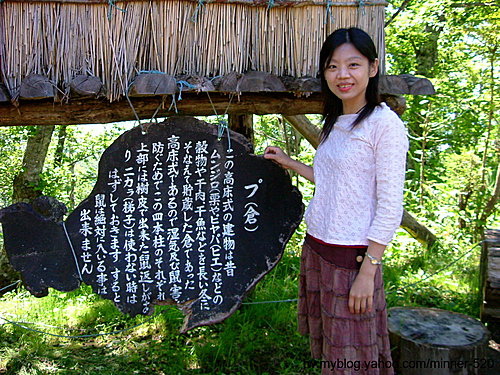 プ(倉)
この高床式の建物は昔
ムンジロ(粟やピヤパ(ヒエ)などの
穀物や干肉、干魚などを長い冬に
そなえて貯蔵した倉であった
高床式であるので湿気及び鼠害
防ぐためでこの四本柱のそれぞれ
上部には樹皮で出来た鼠返しが
り ニカラ(梯子)は使わない時は
はずしておきます すると
鼠は絶対に入いる事は
出来ません
myblog.yahoo.com/minner-520